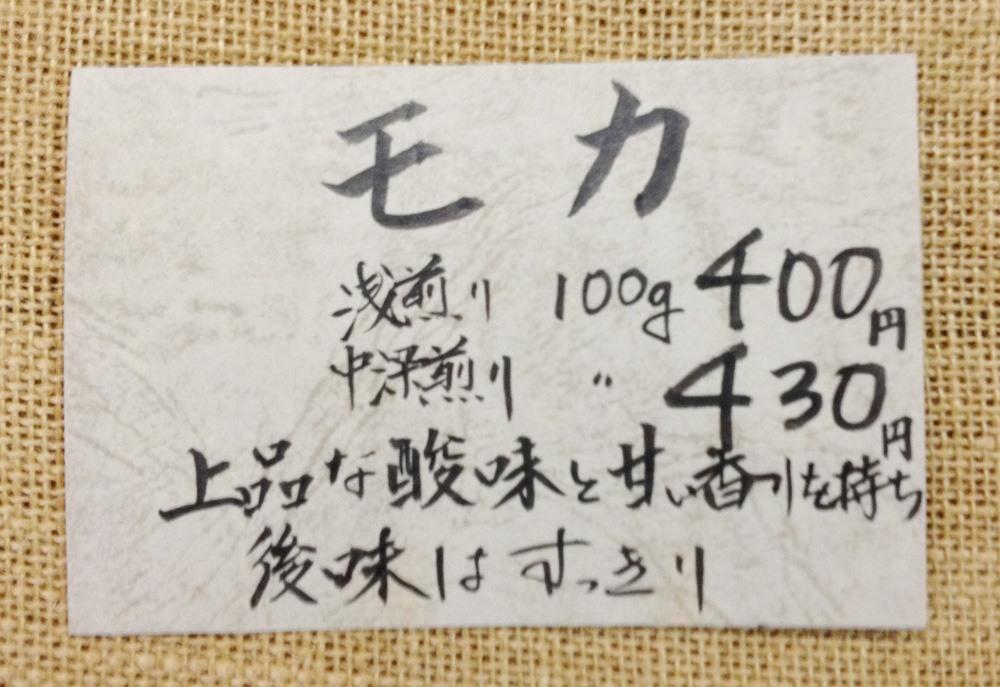 モカ
浅煎り 100g 400円
中深煎り 〃 430円
上品な酸味と甘い香りを持ち
後味はすっきり